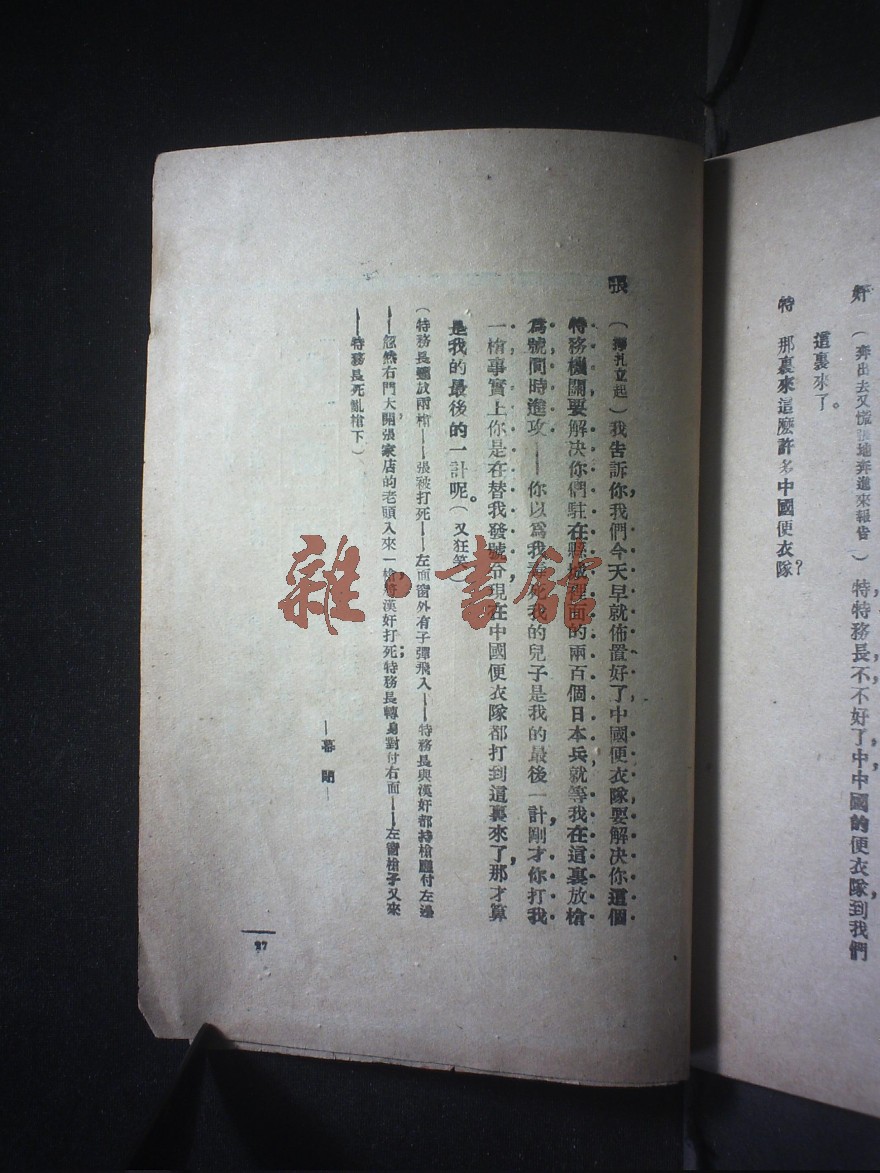 奸 （奔出去又慌張地奔進來報告）特特務長，不不好了，中中國的便衣隊，到我們
這裏來了。
特 那裏來這麽許多中國便衣隊？
張 （掙扎立起）我告訴你，我們今天早就佈置好了，中國便衣隊要解決你這個
特務機關，要解決你們駐在縣城裡面的兩百個日本兵，就等我在這裏放槍
爲號，同時進攻——你以爲我 我的兒子是我的最後一計，剛才你打我
一槍，事實上你是在替我發號令，現在中國便衣隊都打到這裏來了，那才算
是我的最後的一計呢。（又狂笑）
（特務長 放兩槍——張被打死——左面窗外有子彈飛入——特務長與漢奸都持槍應付左邊
——忽然右門大開，張家店的老頭入來一槍將漢奸打死；特務長轉身對付右面——左窗槍子又來
——特務長死亂槍下）
—幕 閉—
27
雜·書館